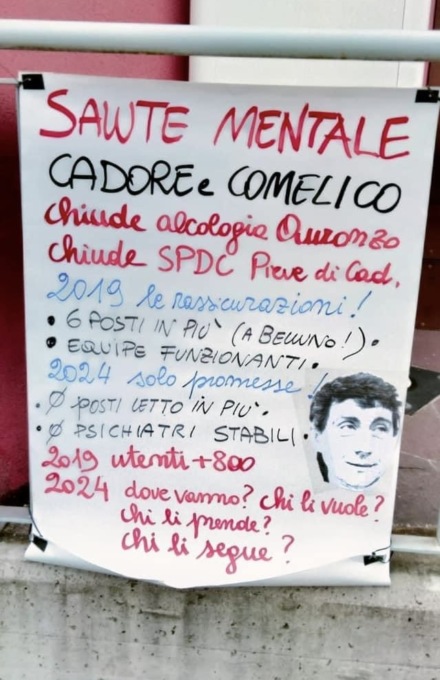 SALUTE MENTALE
CADORE e COMELICO
chiude alcologia Auronzo
chiude SPDC Pieve di Cad.
2019 le rassicurazioni!
• 6 POSTI IN PIÙ (A BELLUNO!).
• EQUIPE FUNZIONANTI.
2024 solo promesse!
• Ø POSTI LETTO IN PIÙ.
• Ø PSICHIATRI STABILI.
2019 utenti +800
2024 dove vanno? Chi li vuole?
Chi li prende?
Chi li segue?